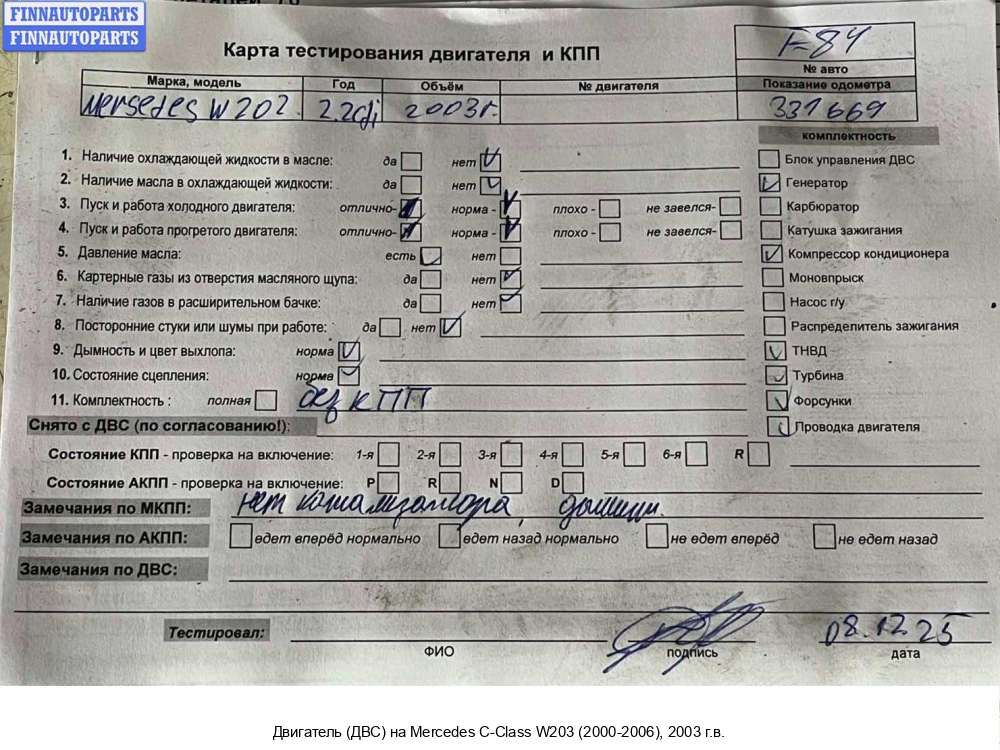 FINNAUTOPARTS
FINNAUTOPARTS
Карта тестирования двигателя и КПП
F-84
№ авто
Марка, модель Год Объём № двигателя Показание одометра
Mersedes W202. 2.2cdi 2003г. 331669
комплектность
1. Наличие охлаждающей жидкости в масле: да нет
Блок управления ДВС
2. Наличие масла в охлаждающей жидкости: да нет
Генератор
3. Пуск и работа холодного двигателя: отлично- норма - плохо - не завелся-
Карбюратор
4. Пуск и работа прогретого двигателя: отлично- норма - плохо - не завелся-
Катушка зажигания
5. Давление масла: есть нет
Компрессор кондиционера
6. Картерные газы из отверстия масляного щупа: да нет
Моновпрыск
7. Наличие газов в расширительном бачке: да нет
Насос г/у
8. Посторонние стуки или шумы при работе: да нет
Распределитель зажигания
9. Дымность и цвет выхлопа: норма
ТНВД
10. Состояние сцепления: норма
Турбина
11. Комплектность : полная без КПП
Форсунки
Снято с ДВС (по согласованию!):
Проводка двигателя
Состояние КПП - проверка на включение: 1-я 2-я 3-я 4-я 5-я 6-я R
Состояние АКПП - проверка на включение: P R N D
Замечания по МКПП: нет катализатора,
Замечания по АКПП: едет вперёд нормально едет назад нормально не едет вперёд не едет назад
Замечания по ДВС:
Тестировал:
08.12.25
ФИО подпись дата
Двигатель (ДВС) на Mercedes C-Class W203 (2000-2006), 2003 г.в.